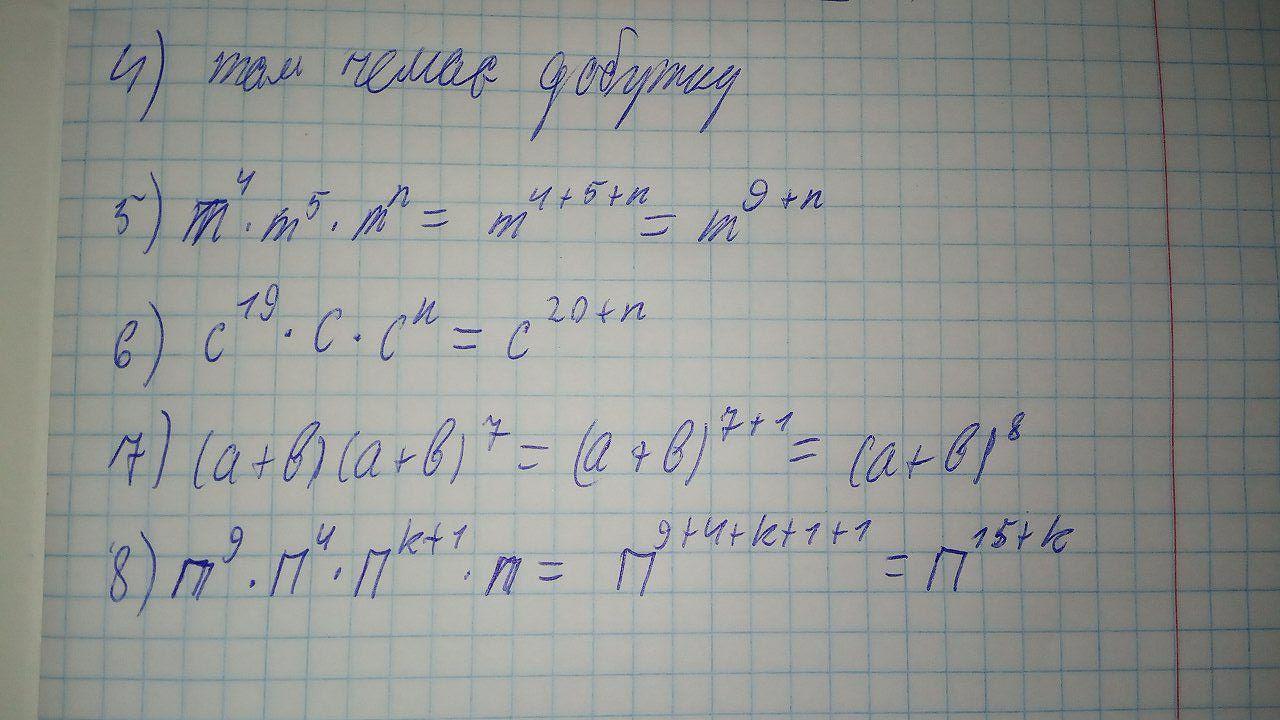 4) там немає добутку
5) m⁴ · m⁵ · mⁿ = m⁴⁺⁵⁺ⁿ = m⁹⁺ⁿ
6) c¹⁹ · c · cⁿ = c²⁰⁺ⁿ
7) (a+b)(a+b)⁷ = (a+b)⁷⁺¹ = (a+b)⁸
8) п⁹ · п⁴ · пᵏ⁺¹ · п = п⁹⁺⁴⁺ᵏ⁺¹⁺¹ = п¹⁵⁺ᵏ